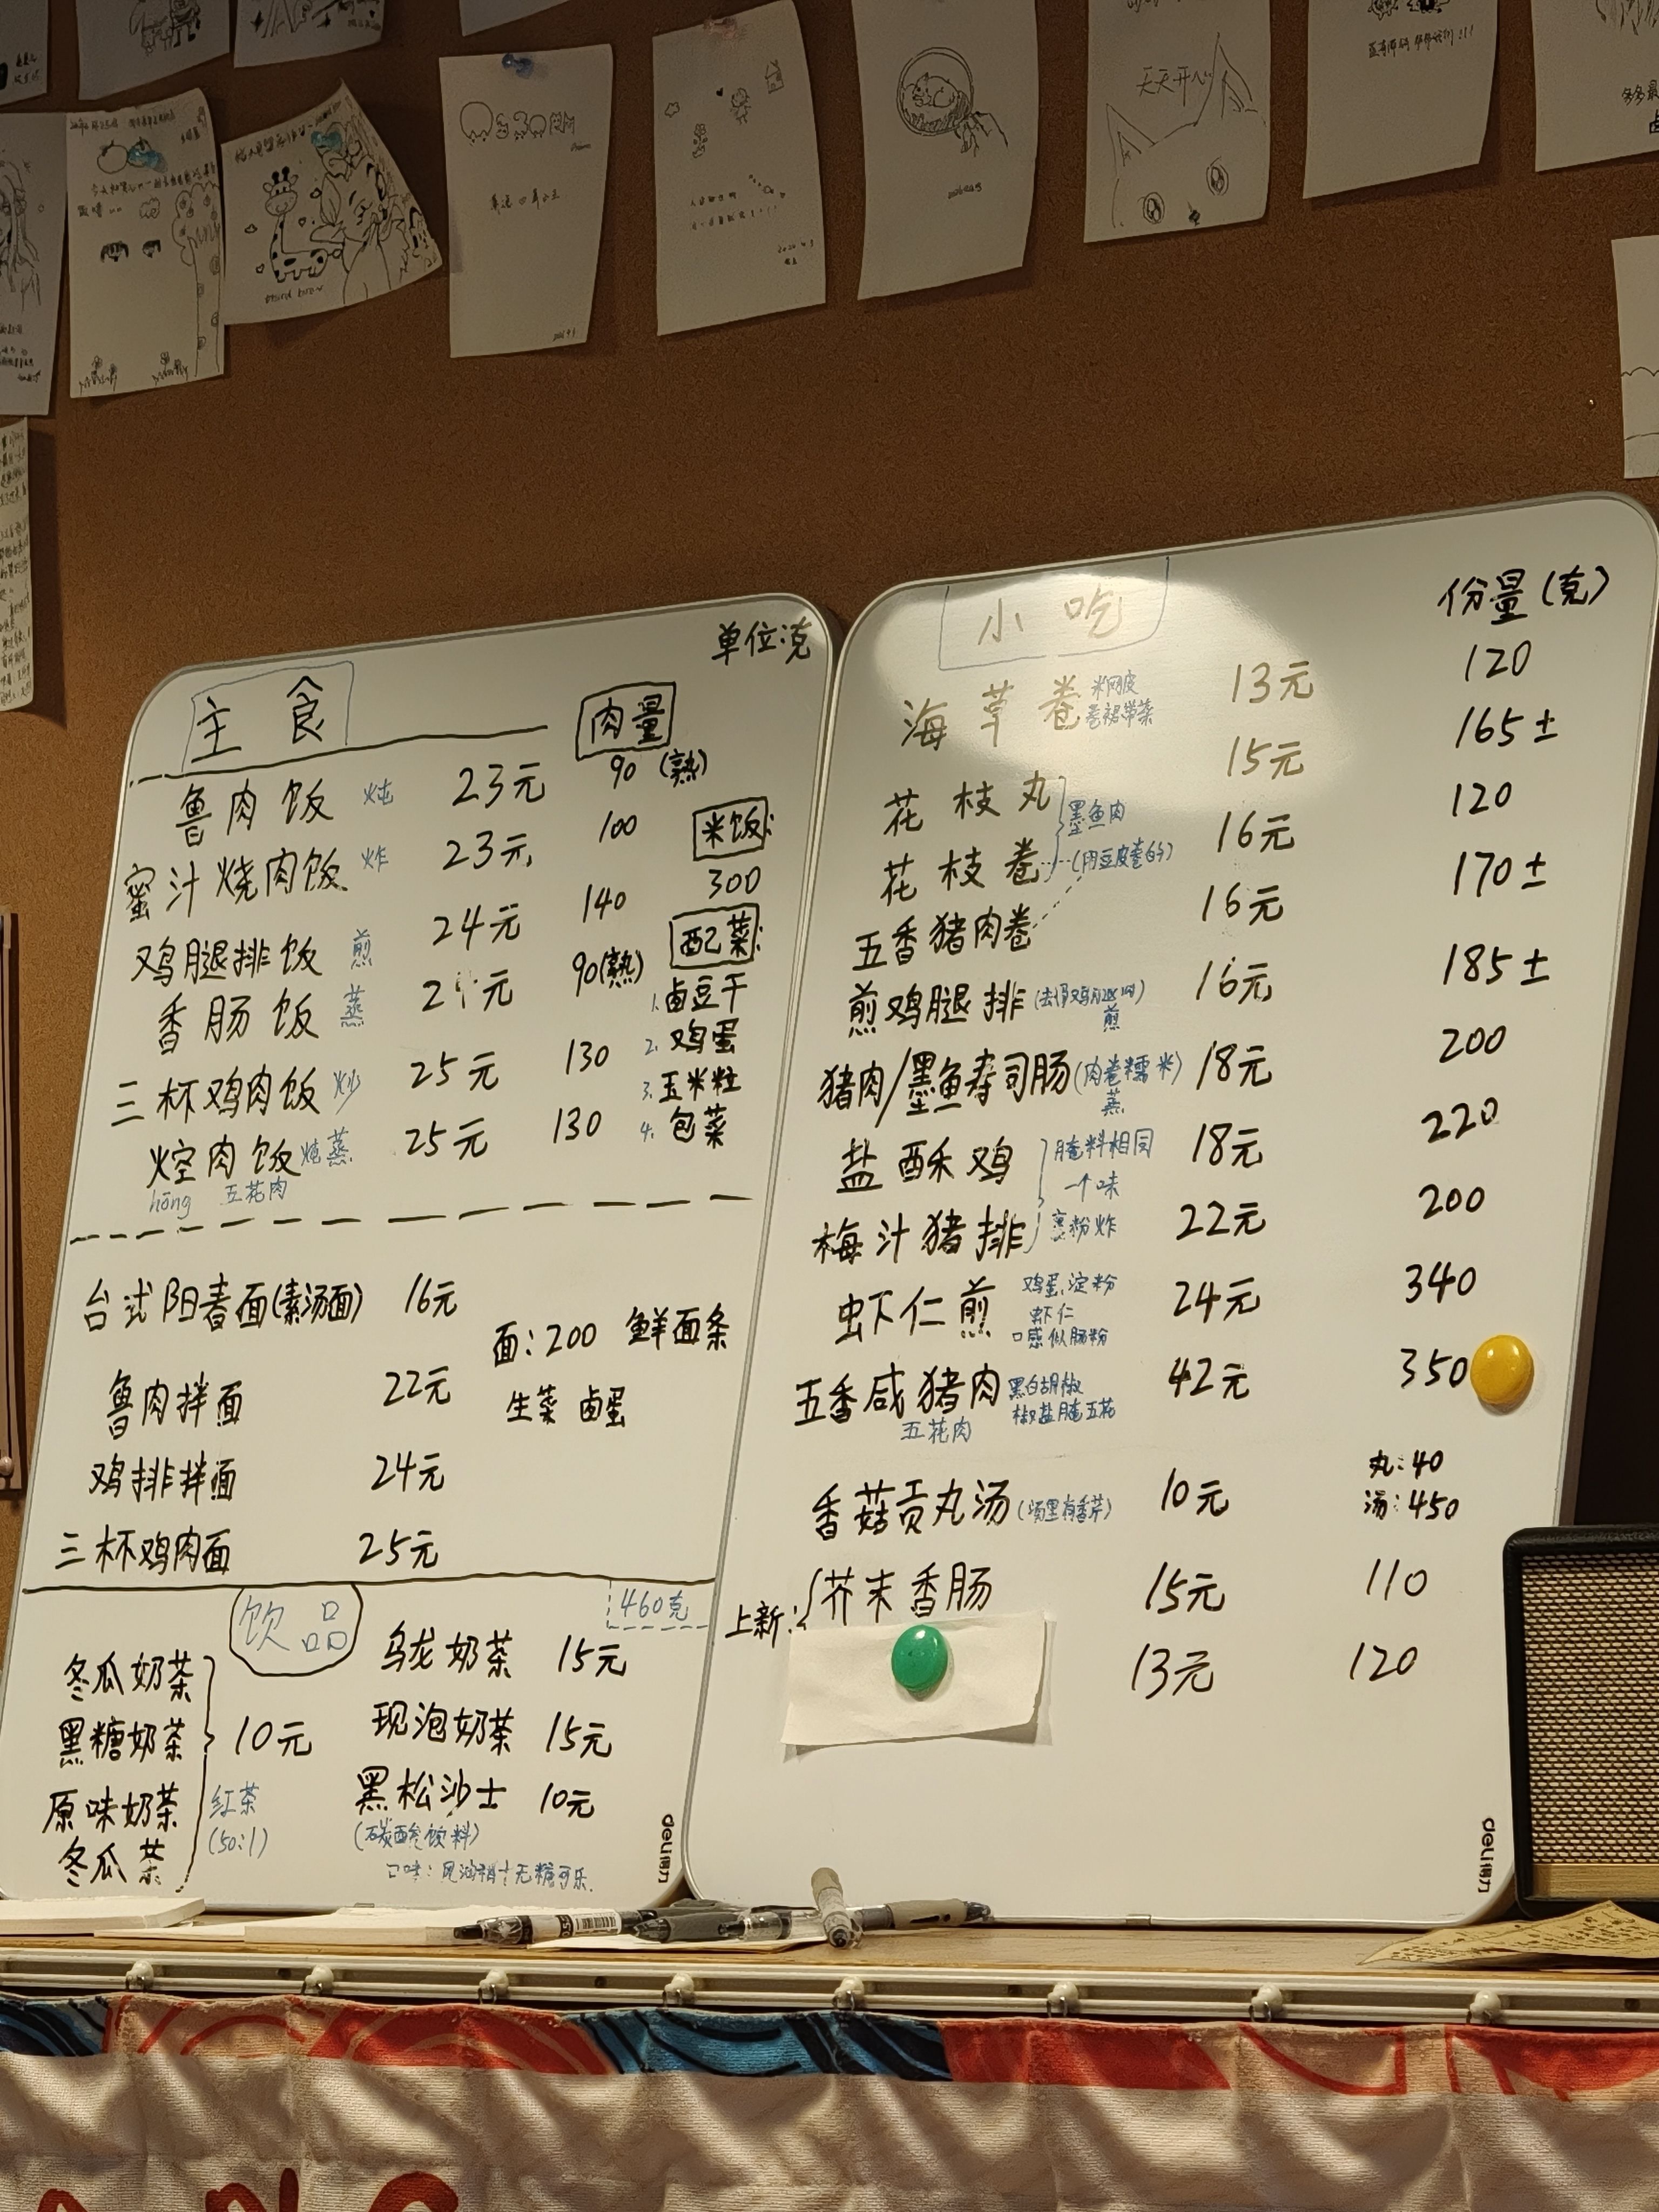 天天开心
单位:克
主食
肉量
鲁肉饭 炖 23元 90(熟)
蜜汁烧肉饭 炸 23元 100
鸡腿排饭 煎 24元 140
香肠饭 蒸 2 元 90(熟)
三杯鸡肉饭 炒 25元 130
焢肉饭 炖蒸 25元 130
hōng 五花肉
米饭:
300
配菜:
1.卤豆干
2.鸡蛋
3.玉米粒
4.包菜
台式阳春面(素汤面) 16元
鲁肉拌面 22元
鸡排拌面 24元
三杯鸡肉面 25元
面:200 鲜面条
生菜 卤蛋
饮品
460克
冬瓜奶茶
黑糖奶茶
原味奶茶
冬瓜茶
10元
红茶
(50:1)
乌龙奶茶 15元
现泡奶茶 15元
黑松沙士 10元
(碳酸饮料)
口味:风油精+无糖可乐.
deli得力
小吃
份量(克)
海草卷 米网皮 卷裙带菜 13元 120
花枝丸 15元 165±
墨鱼肉
花枝卷 (用豆皮卷的) 16元 120
五香猪肉卷 16元 170±
煎鸡腿排 煎 16元 185±
猪肉/墨鱼寿司肠(肉卷糯米) 蒸 18元 200
盐酥鸡 18元 220
腌料相同
一个味
裹粉炸
梅汁猪排 22元 200
虾仁煎 24元 340
鸡蛋,淀粉
虾仁
口感似肠粉
五香咸猪肉 42元 350
黑白胡椒
椒盐腌五花
五花肉
香菇贡丸汤(汤里有香芹) 10元 丸:40
汤:450
上新:
芥末香肠 15元 110
13元 120
deli得力